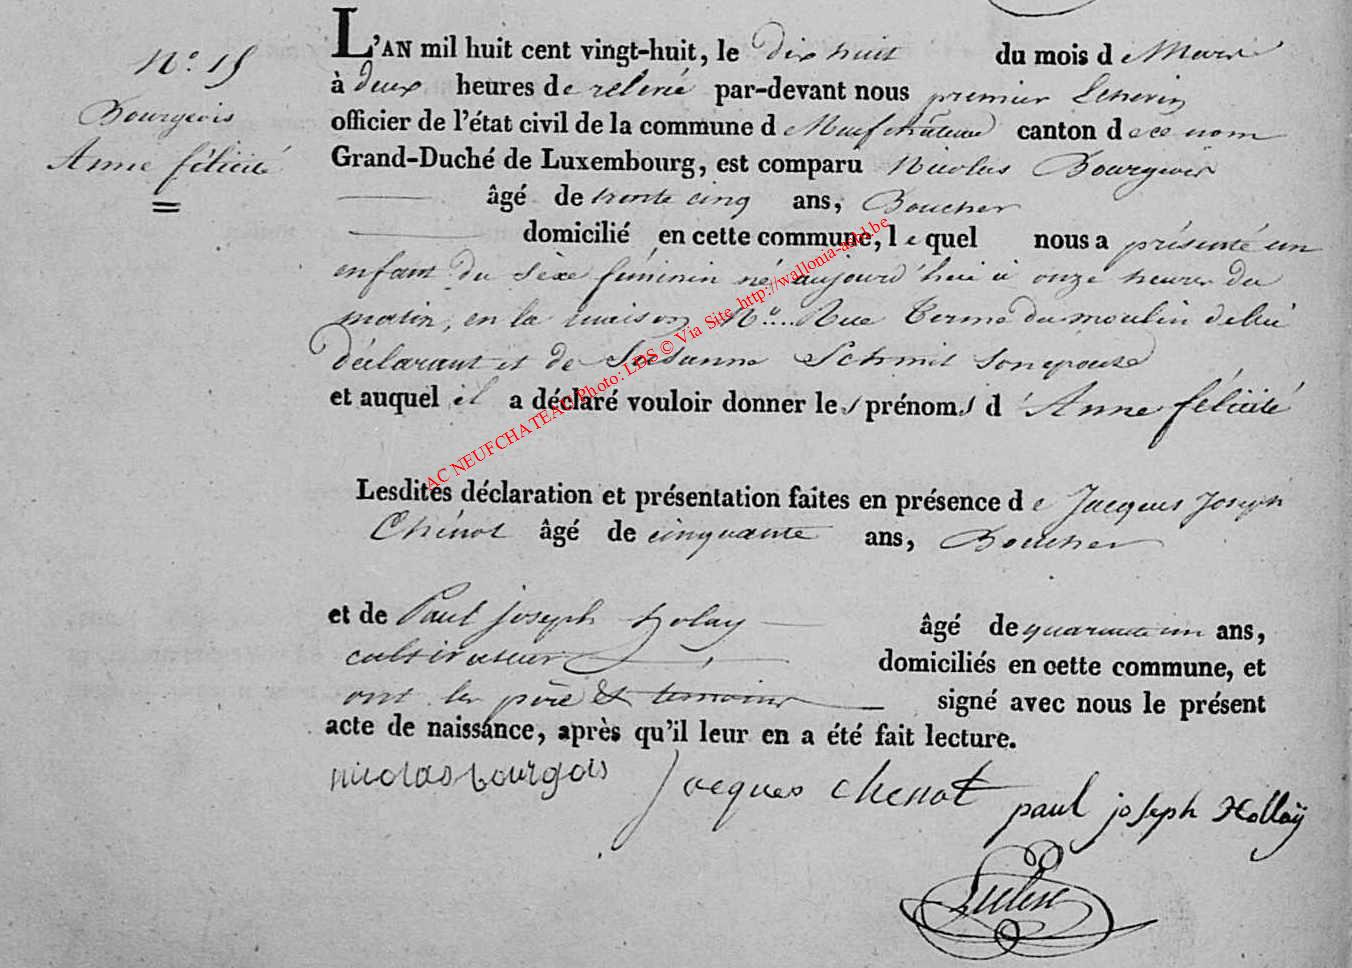 N.° 15
Bourgeois
Anne félicité
L'AN mil huit cent vingt-huit, le dix huit du mois de Mars
à deux heures de relevée par-devant nous premier Echevin
officier de l'état civil de la commune de Neufchâteau canton de ce nom
Grand-Duché de Luxembourg, est comparu Nicolas Bourgeois
âgé de trente cinq ans, Boucher
domicilié en cette commune, le quel nous a présenté un
enfant du sexe féminin né aujourd'hui à onze heures du
matin, en la maison N.° ... Rue Terme du moulin de lui
déclarant et de Susanne Schmit son epouse
et auquel il a déclaré vouloir donner les prénoms d'Anne félicité
Lesdites déclaration et présentation faites en présence de Jacques Joseph
Chénot âgé de cinquante ans, Boucher
et de Paul Joseph holay âgé de quarante un ans,
cultivateur domiciliés en cette commune, et
ont les père et temoins signé avec nous le présent
acte de naissance, après qu'il leur en a été fait lecture.
nicolas bourgois Jacques chenot paul joseph Hollaÿ
AC NEUFCHATEAU Photo: LDS © Via Site http://wallonia-asbl.be